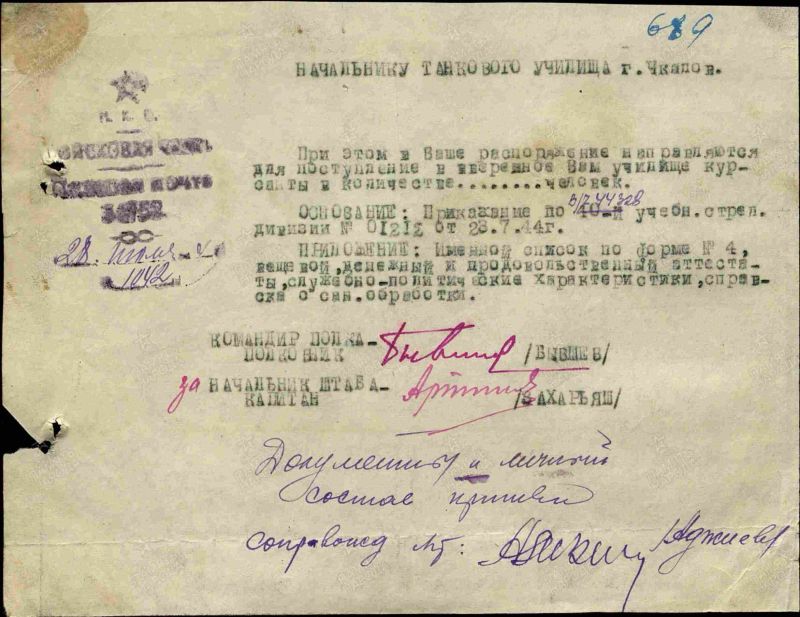 689
НАЧАЛЬНИКУ ТАНКОВОГО УЧИЛИЩА г.Чкалов.
Н. К. О.
ВОЙСКОВАЯ ЧАСТЬ
Полевая почта
28. июля
1042
При этом в Ваше распоряжение направляются
для поступление в вверенное Вам училище кур-
санты в количестве........человек.
В/Ч 44328
ОСНОВАНИЕ: Приказание по 40-й учебн.стрел.
дивизии № 01212 от 23.7.44г.
ПРИЛОЖЕНИЕ: Именной список по форме № 4,
вещевой,денежный и продовольственный аттеста-
ты,служебно-политические характеристики,справ-
ска с сан.обработки.
КОМАНДИР ПОЛКА-
ПОЛКОВНИК /БЫВШЕВ/
за НАЧАЛЬНИК ШТАБА-
КАПИТАН /ЗАХАРЬЯШ/
Документы и личный
состав принял
сопровожд